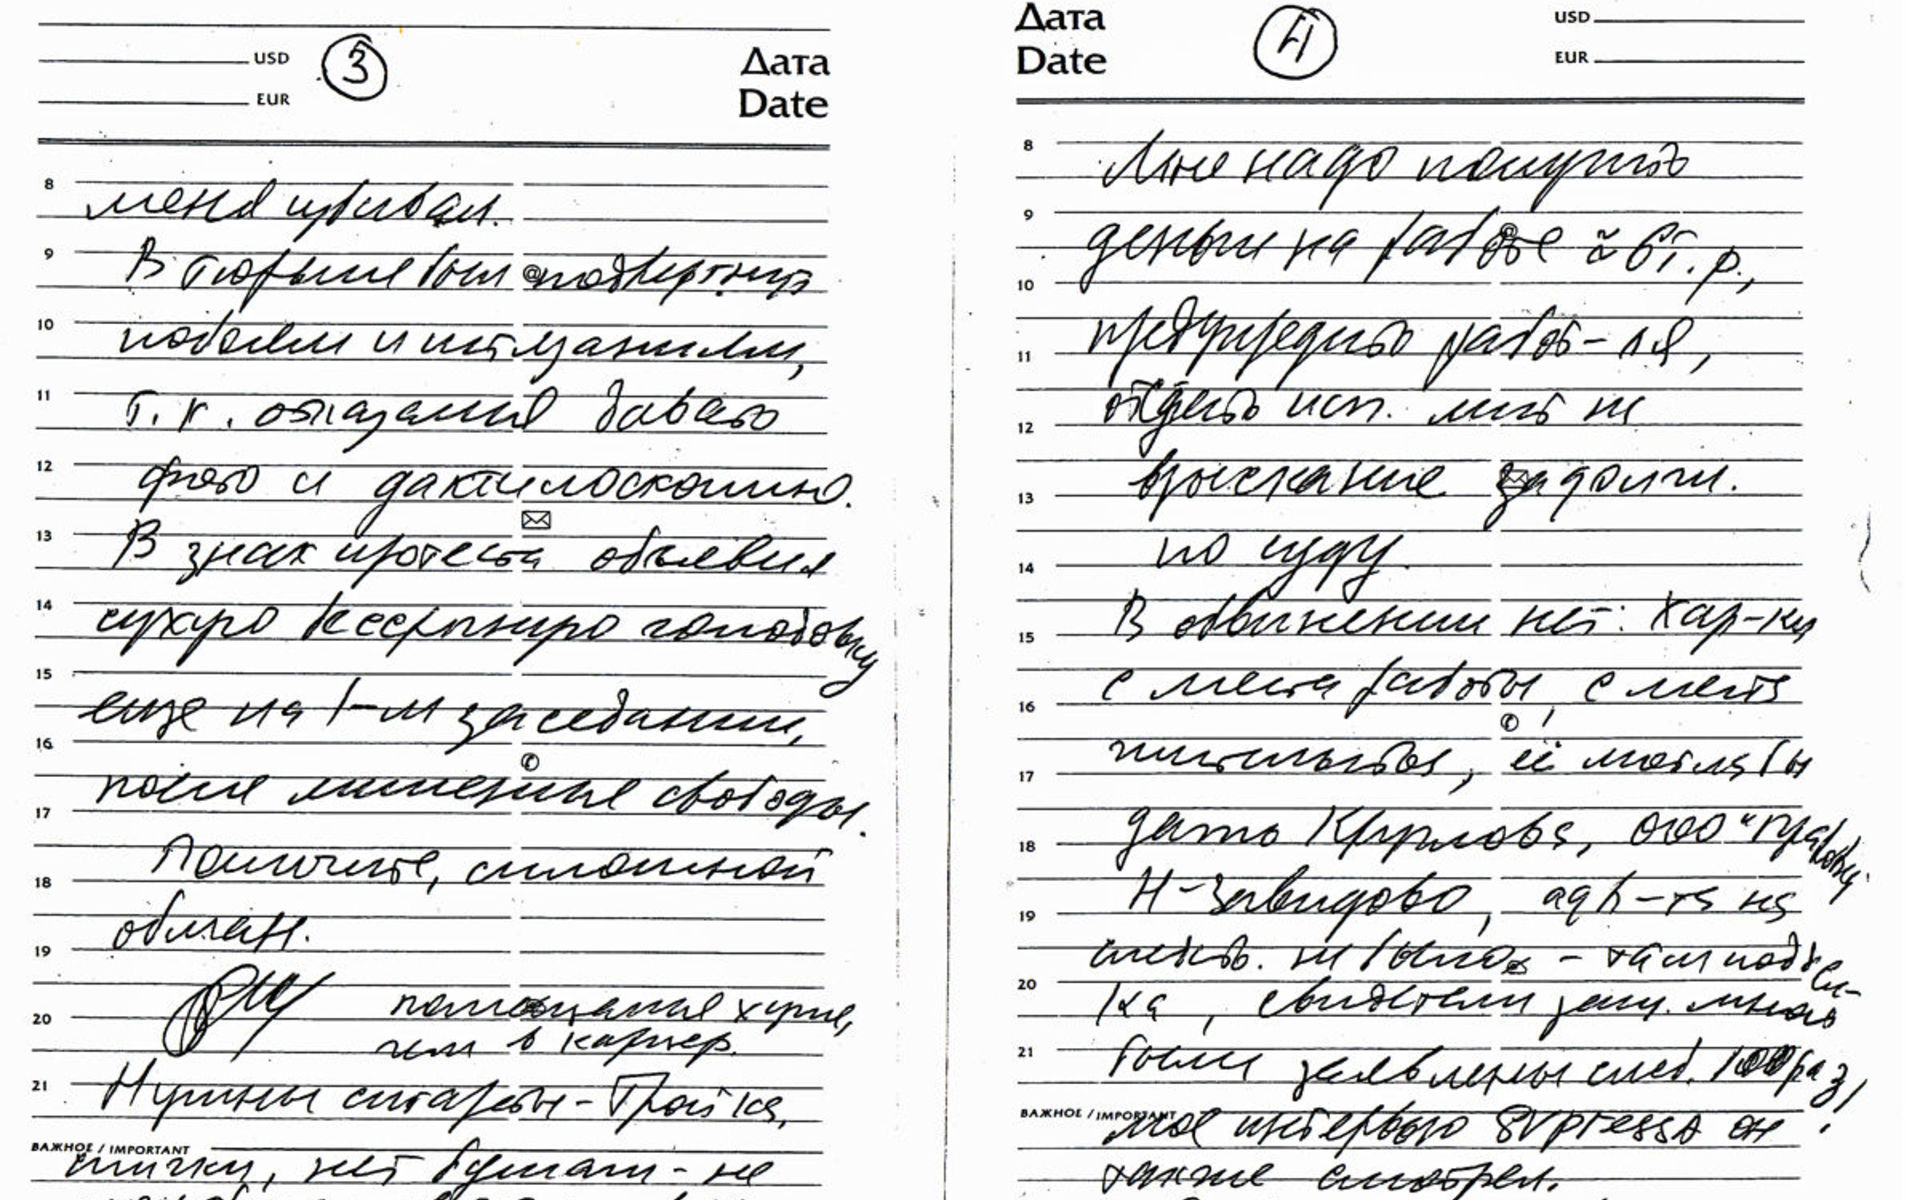 USD
3
Дата
EUR
Date
8
меня избивал.
9
В тюрьме был подвергнут
10
побоям и истязаниям,
11
т.к. отказался давать
12
фото и дактилоскопию.
13
В знак протеста объявил
14
сухую бессрочную голодовку
15
еще на 1-м заседании,
16
17
после лишения свободы.
Помогите, сплошной
18
обман.
19
помещения хуже,
20
чем в карцер.
21
Нужны сигареты - Тройка,
ВАЖНОЕ / IMPORTANT
спички, нет бумаги - не
Дата
4
USD
Date
EUR
8
Мне надо получить
9
деньги на работе ≈ 6 т.р.,
10
предупредить работ-ля,
11
отдать исп. лист на
12
взыскание задолж.
13
по суду.
14
В обвинении нет: хар-ки
15
с места работы, с места
16
жительства, её могла бы
17
дать Круглова, ООО "
18
Н-Завидово, адв-та на
19
следств. не было - там
20
ка, свидетели защ. мною
21
были заявлены след. 100 раз,
ВАЖНОЕ / IMPORTANT
мое интервью SVpressa он
также смотрел.